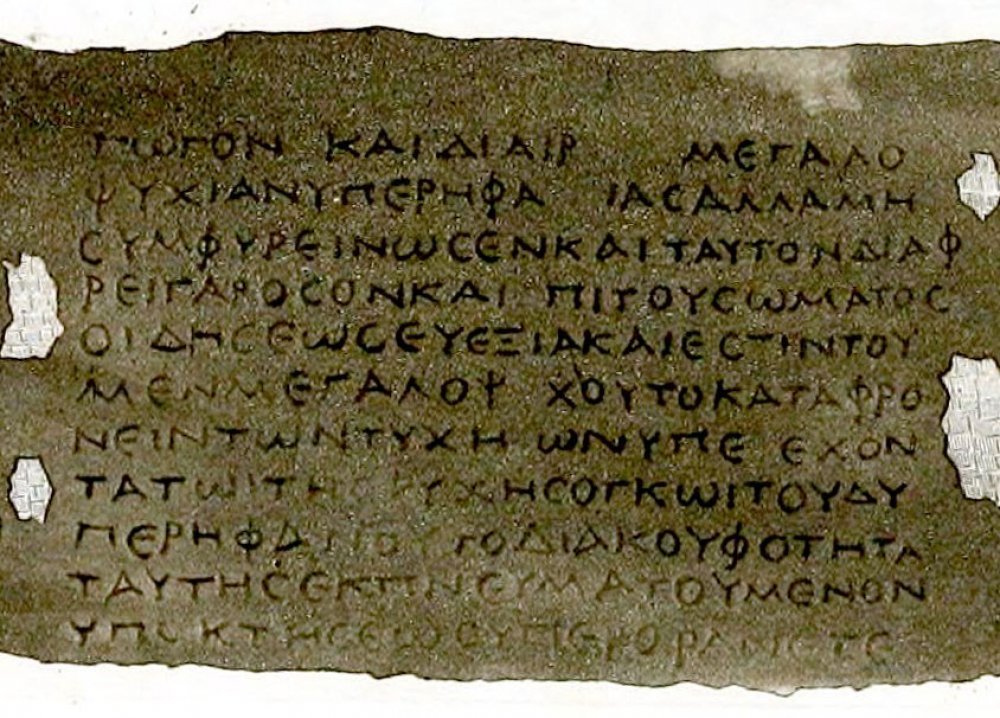 ΠΩΓΟΝ ΚΑΙ ΔΙΑΙΡ ΜΕΓΑΛΟ
ΨΥΧΙΑΝ ΥΠΕΡΗΦΑ ΙΑϹ ΑΛΛΑ ΜΗ
ϹΥΜΦΥΡΕΙΝ ΩϹ ΕΝ ΚΑΙ ΤΑΥΤΟΝ ΔΙΑΦ
ΡΕΙ ΓΑΡ ΟϹΟΝ ΚΑΙ ΠΙ ΤΟΥ ϹΩΜΑΤΟϹ
ΟΙΔΗϹΕΩϹ ΕΥΕΞΙΑ ΚΑΙ ΕϹΤΙΝ ΤΟΥ
ΜΕΝ ΜΕΓΑΛΟΨ ΧΟΥ ΤΟ ΚΑΤΑΦΡΟ
ΝΕΙΝ ΤΩΝ ΤΥΧΗ ΩΝ ΥΠΕ ΕΧΟΝ
ΤΑ ΤΩΙ ΤΗ ΥΧΗϹ ΟΓΚΩΙ ΤΟΥ ΔΥ
ΠΕΡΗΦΑΝΟΥ ΤΟ ΔΙΑ ΚΟΥΦΟΤΗΤΑ
ΤΑΥΤΗϹ ΕΚΠΝΕΥΜΑΤΟΥΜΕΝΟΝ
ΥΠΟ ΚΤΗϹΕΩϹ ΥΠΕΡΟΡΑΝ ΕΤΕ